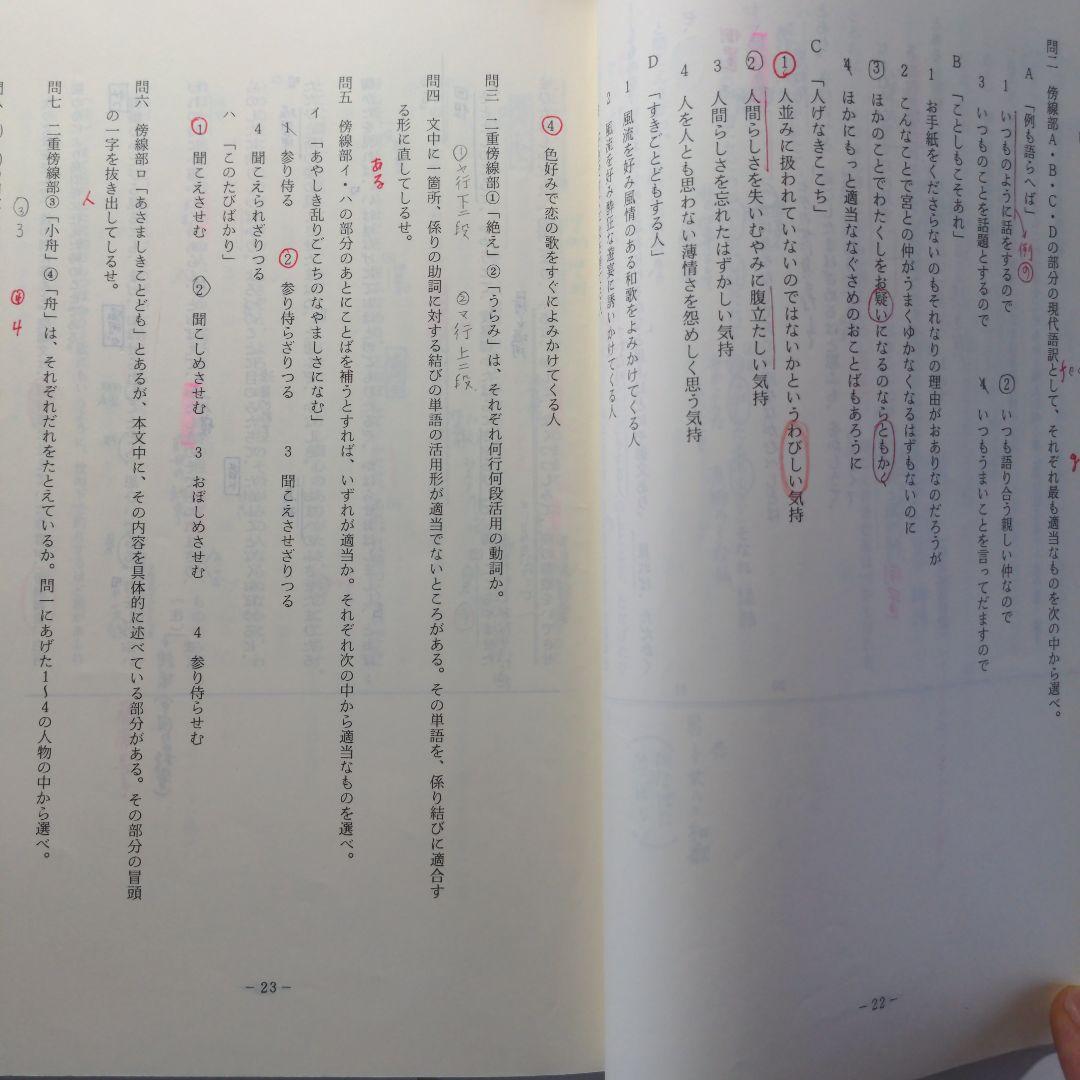 問二 傍線部A・B・C・Dの部分の現代語訳として、それぞれ最も適当なものを次の中から選べ。
A 「例も語らへば」
1 いつものように話をするので
② いつも語り合う親しい仲なので
例の
3 いつものことを話題とするので
4 いつもうまいことを言ってだますので
B 「ことしもこそあれ」
1 お手紙をくださらないのもそれなりの理由がおありなのだろうが
2 こんなことで宮との仲がうまくゆかなくなるはずもないのに
③ ほかのことでわたくしをお疑いになるのならともかく
4 ほかにもっと適当ななぐさめのおことばもあろうに
C 「人げなきここち」
① 人並みに扱われていないのではないかというわびしい気持
② 人間らしさを失いむやみに腹立たしい気持
3 人間らしさを忘れたはずかしい気持
4 人を人とも思わない薄情さを怨めしく思う気持
D 「すきごとどもする人」
1 風流を好み風情のある和歌をよみかけてくる人
2 風流を好み酔狂な遊宴に誘いかけてくる人
－22－
④ 色好みで恋の歌をすぐによみかけてくる人
問三 二重傍線部①「絶え」②「うらみ」は、それぞれ何行何段活用の動詞か。
①ヤ行下二段 ②マ行上二段
問四 文中に一箇所、係りの助詞に対する結びの単語の活用形が適当でないところがある。その単語を、係り結びに適合す
る形に直してしるせ。
ある
問五 傍線部イ・ハの部分のあとにことばを補うとすれば、いずれが適当か。それぞれ次の中から適当なものを選べ。
イ 「あやしき乱りごこちのなやましさになむ」
1 参り侍る ② 参り侍らざりつる 3 聞こえさせざりつる
4 聞こえられざりつる
ハ 「このたびばかり」
① 聞こえさせむ ② 聞こしめさせむ 3 おぼしめさせむ 4 参り侍らせむ
問六 傍線部ロ「あさましきことども」とあるが、本文中に、その内容を具体的に述べている部分がある。その部分の冒頭
の一字を抜き出してしるせ。
人
問七 二重傍線部③「小舟」④「舟」は、それぞれだれをたとえているか。問一にあげた1～4の人物の中から選べ。
③3 ④4
－23－